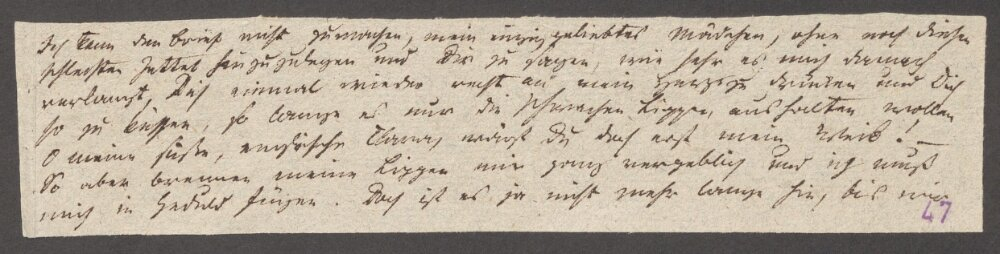 Ich kann den Brief nicht zumachen, mein einzig geliebtes Mädchen, ohne noch diesen
schlechten Zettel hinzuzulegen und Dir zu sagen, wie sehr es mich danach
verlangt, Dich einmal wieder recht an mein Herze zu drücken und Dich
so zu küssen, so lange es nur die schwachen Lippen aushalten wollen
O meine süße, Clara, wärest Du doch erst mein Weib! –
So aber brennen meine Lippen mir ganz vergeblich und ich muß
mich in Geduld fügen. Doch ist es ja nicht mehr lange hin, bis wir
47